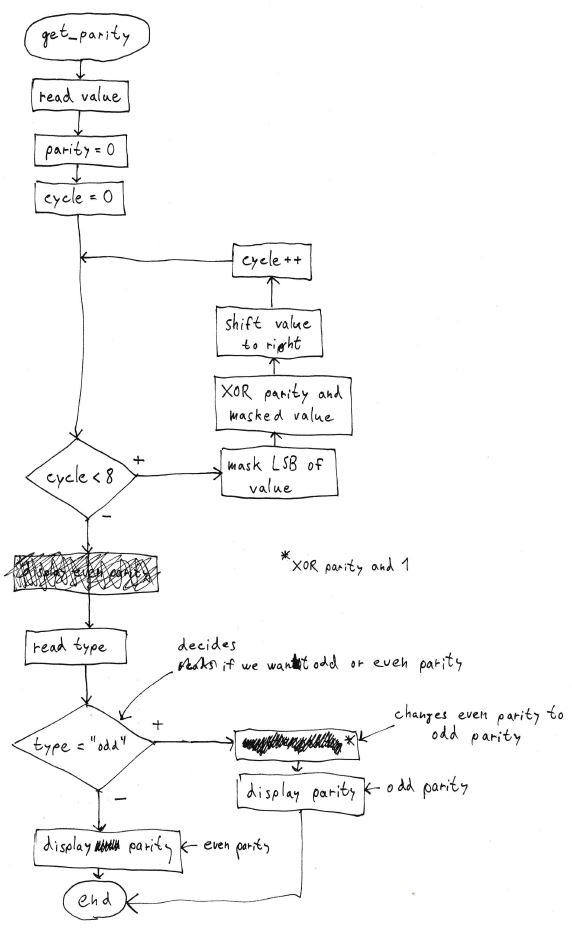 get_parity
read value
parity = 0
cycle = 0
cycle++
shift value
to right
XOR parity and
masked value
cycle < 8
+
mask LSB of
value
-
display even parity
* XOR parity and 1
read type
decides
if we want odd or even parity
type = "odd"
+
*
changes even parity to
odd parity
display parity
odd parity
-
display parity
even parity
end